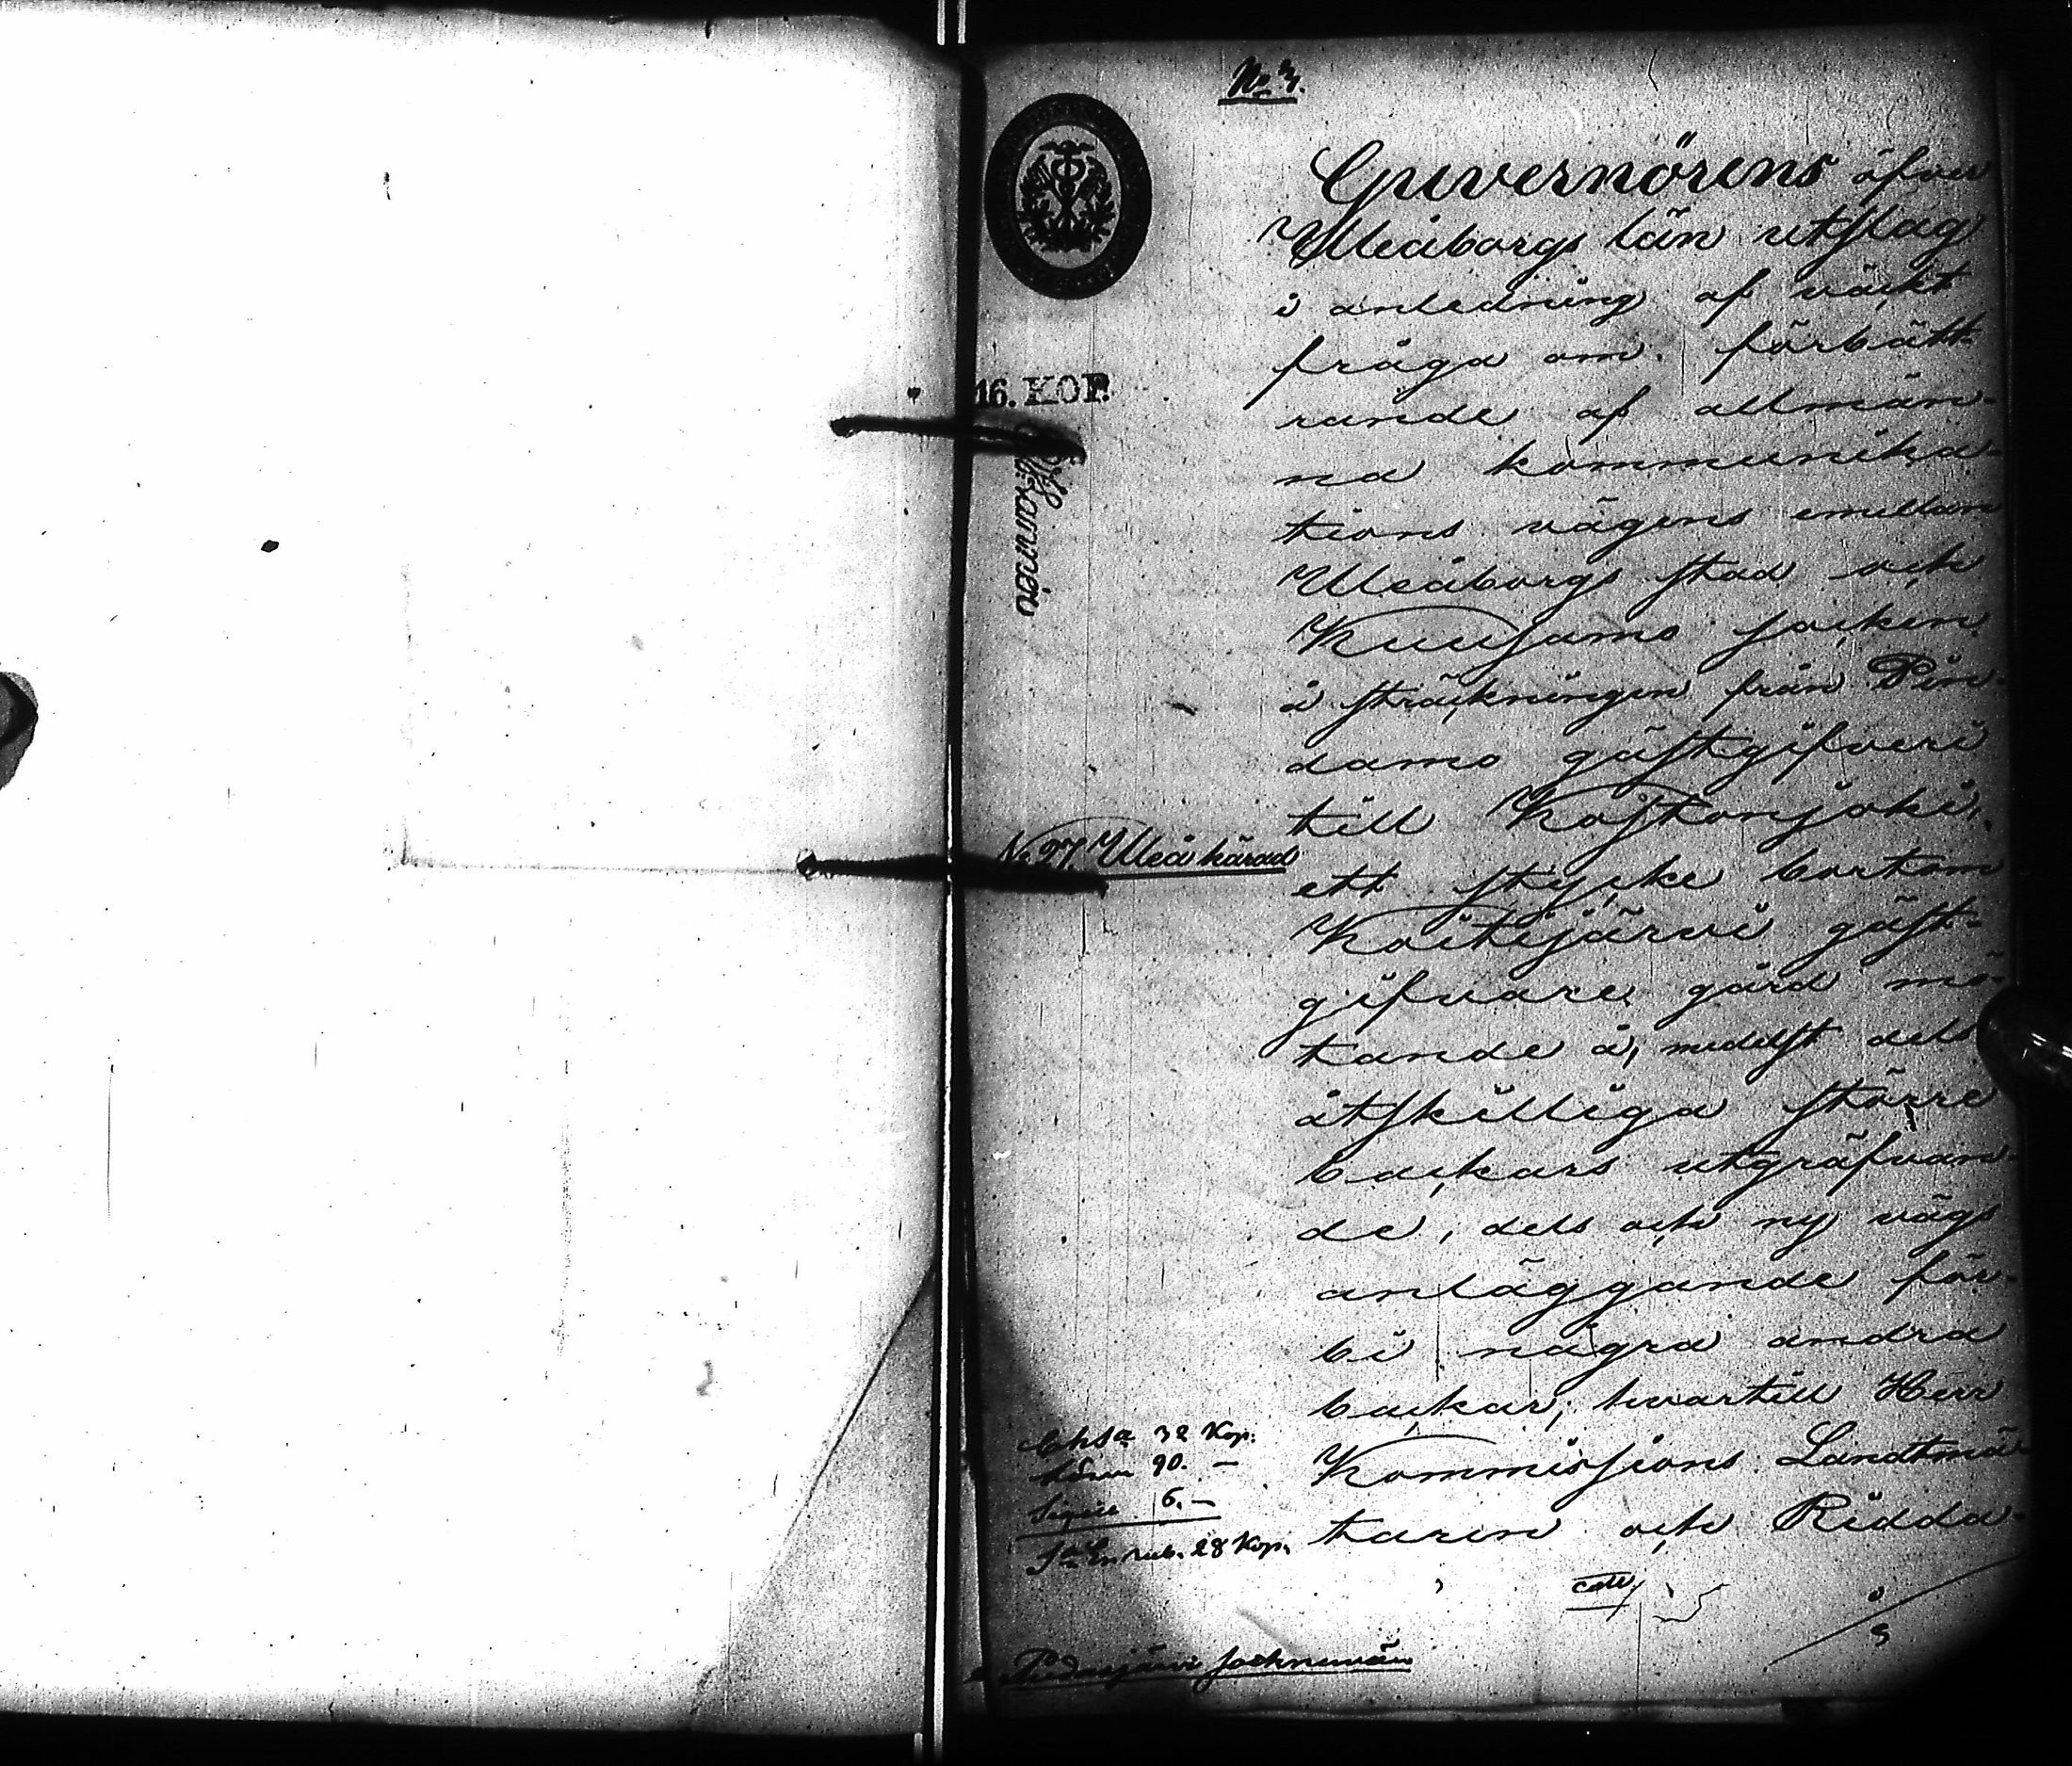 No 3.
Guvernörens öfver
Uleåborgs län utslag
i anledning af väckt
fråga om förbätt-
rande af allmän-
na kommunika-
tions vägens emellan
Uleåborgs stad och
Kuusamo socken
å sträckningen från Pin-
damo gästgifveri
till Kostonjoki,
ett stycke bortom
Koitijärvi gäst-
gifvare gård mö-
tande å, medelst dels
åtskilliga större
backars utgräfvan-
de, dels och ny vägs
anläggande för-
bi några andra
backar; hvartill Herr
Kommissions Landtmä-
taren och Ridda-
16. KOP.
No 27 Uleå härad
Chsa 32 Kop.
90. —
Sigill 6. —
Sa En rub. 28 Kop.
Pudasjärvi Socknemän